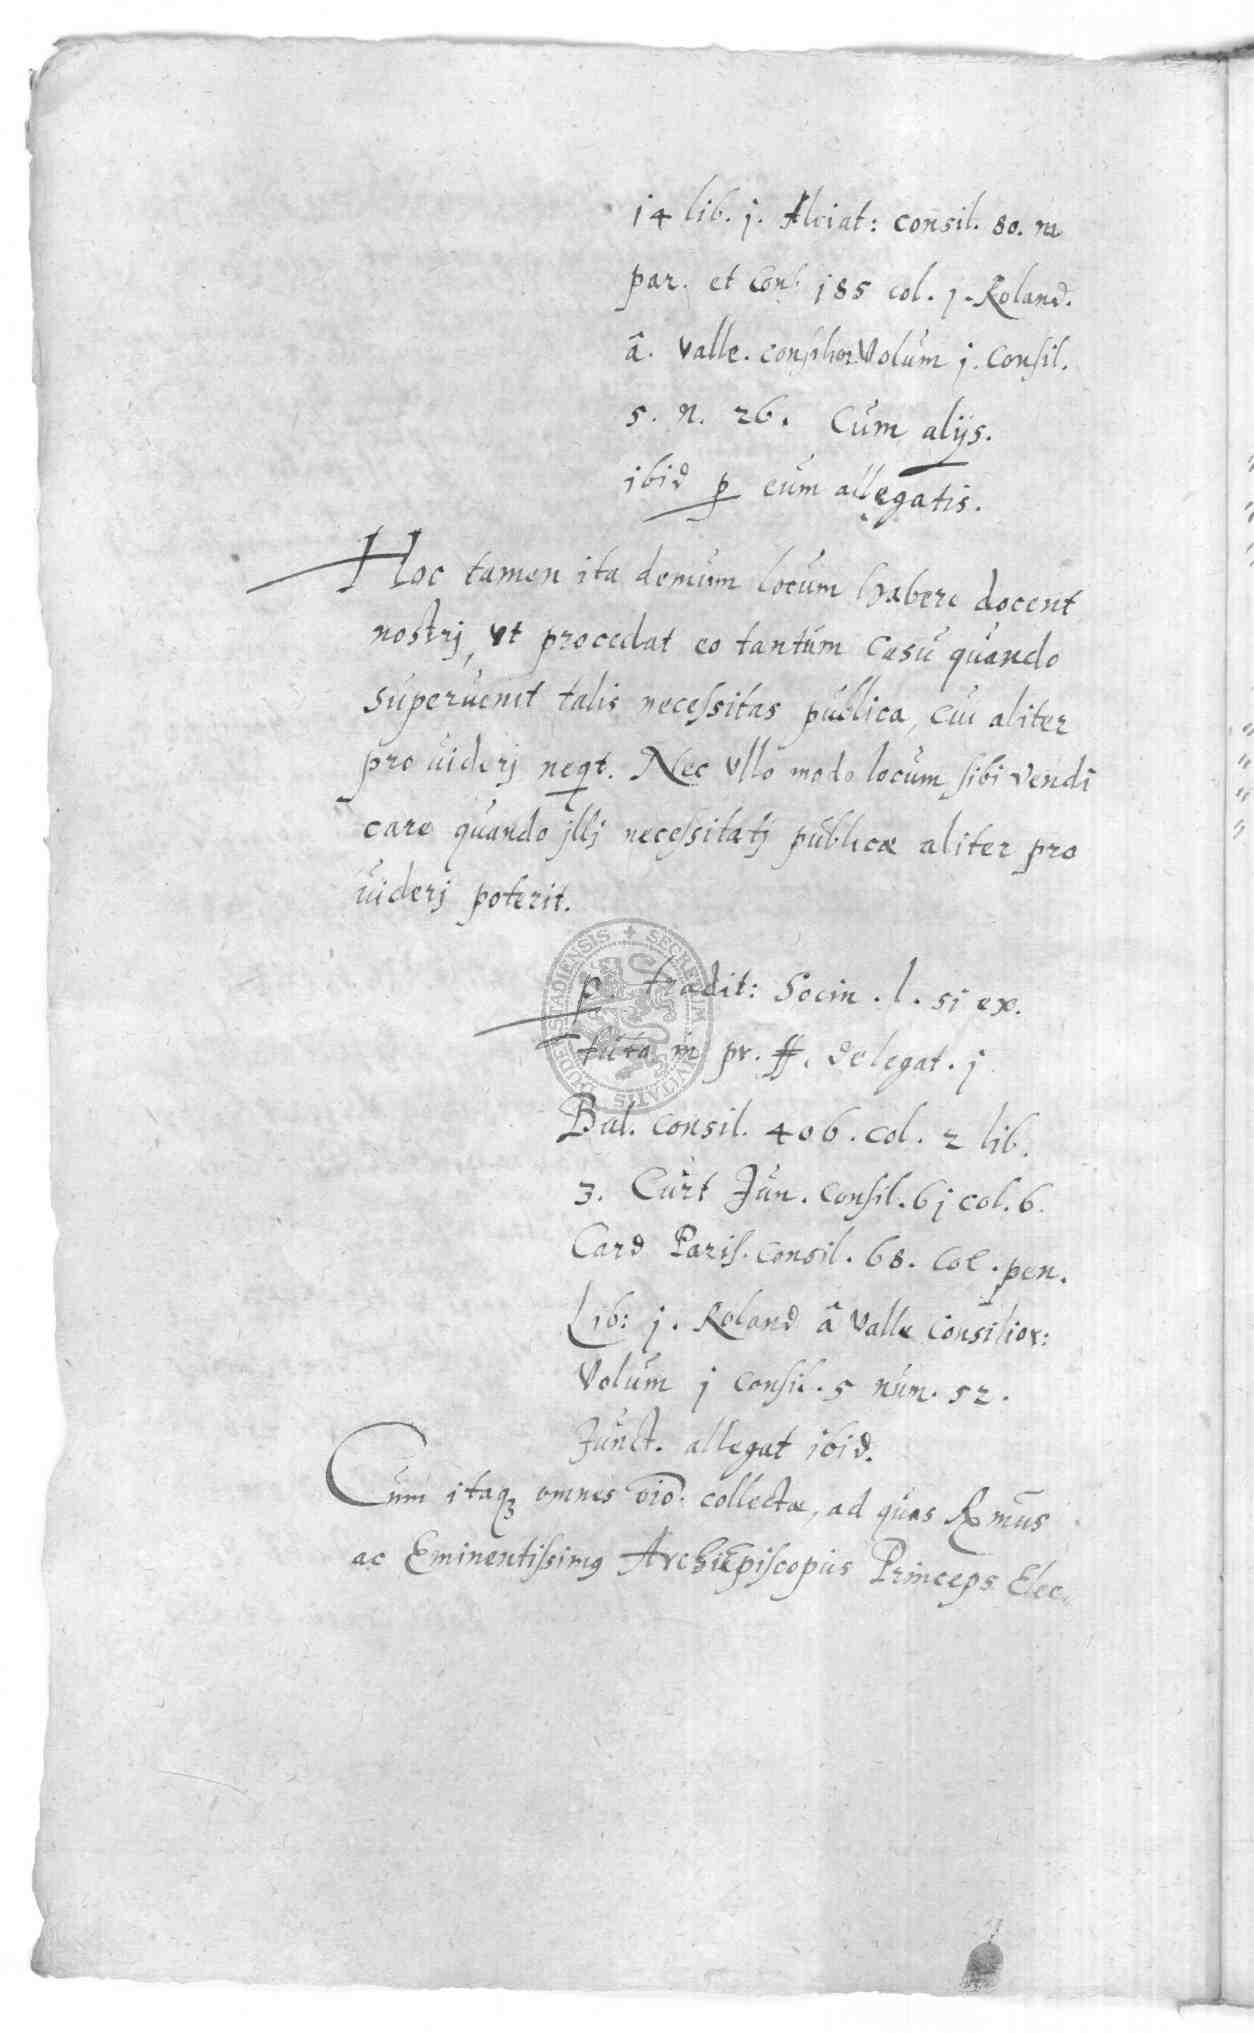 14 lib. j. Alciat: consil. 80. in
par. et Cons. 185 col. j. Roland.
â. Valle. consilior Volum j. Consil.
5. n. 26. Cum alijs.
ibid p eum allegatis.
Hoc tamen ita demum locum habere docent
nostrj, vt procedat eo tantum casu quando
superuenit talis necessitas publica, cui aliter
prouiderj neqt. Nec vllo modo locum sibi vendi
care quando jllj necessitatj publicæ aliter pro
uiderj poterit.
p. tradit: Socin. l. si ex.
in pr. ff. delegat. j
Bal. consil. 406. col. 2 lib.
3. Curt Jun. Consil. 6j col. 6.
Card Paris. consil. 68. Col. pen.
Lib: j. Roland â Valle Consilior:
Volum j consil. 5 num. 52.
Junct. allegat ibid.
Cum itaq3 omnes collectæ, ad quas Rmus
ac Eminentissimg ArchiEpiscopus Princeps Elec
SECRETUM CIVITATIS DUDERSTADIENSIS